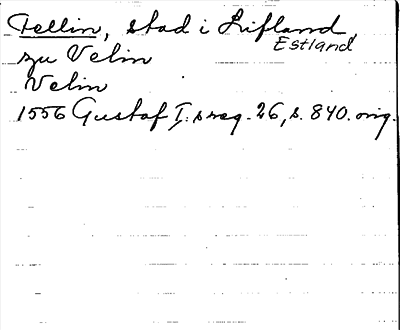 Fellin, stad i Lifland
Estland
zu Velin
Velin
1556 Gustaf I:s reg. 26, s. 840. orig.